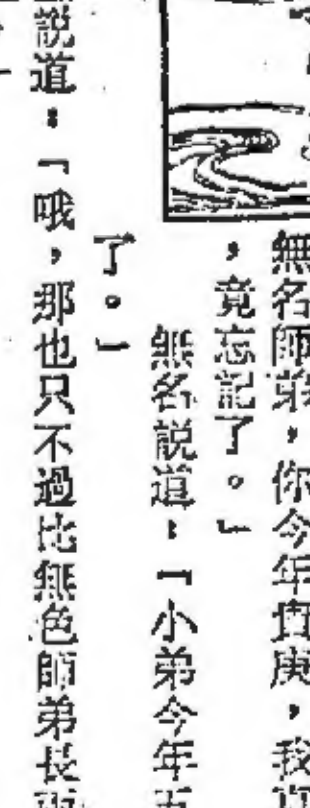 無名師弟，你今年貴庚，我
，竟忘記了。」
無名説道：「小弟今年五
了。」
説道：「哦，那也只不過比無色師弟長